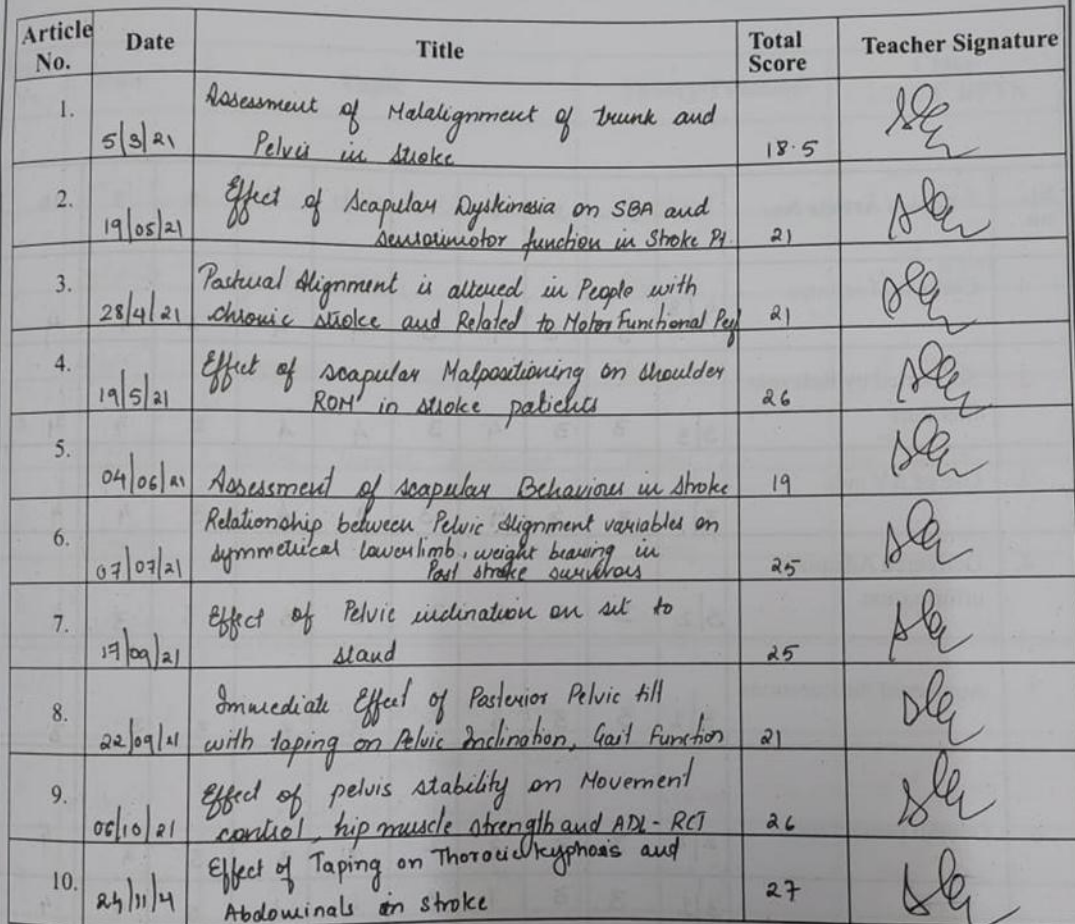 Article No. Date Title Total Score Teacher Signature
1. Assessment of Malalignment of trunk and
5/3/21 Pelvis in stroke 18.5
2. Effect of Scapular Dyskinesia on SBA and
19/05/21 sensorimotor function in Stroke Pt. 21
3. Postural Alignment is altered in People with
28/4/21 chronic stroke and Related to Motor Functional Perf 21
4. Effect of scapular Malpositioning on shoulder
19/5/21 ROM in stroke patients 26
5.
04/06/21 Assessment of scapular Behaviour in stroke 19
6. Relationship between Pelvic Alignment variables on
symmetrical lowerlimb, weight bearing in
07/07/21 Post stroke survivors 25
7. Effect of Pelvic inclination on sit to
17/09/21 stand 25
8. Immediate Effect of Posterior Pelvic tilt
22/09/21 with taping on Pelvic Inclination, Gait Function 21
9. Effect of pelvis stability on Movement
06/10/21 control, hip muscle strength and ADL - RCT 26
10. Effect of Taping on Thoracic kyphosis and
24/11/21 Abdominals in stroke 27